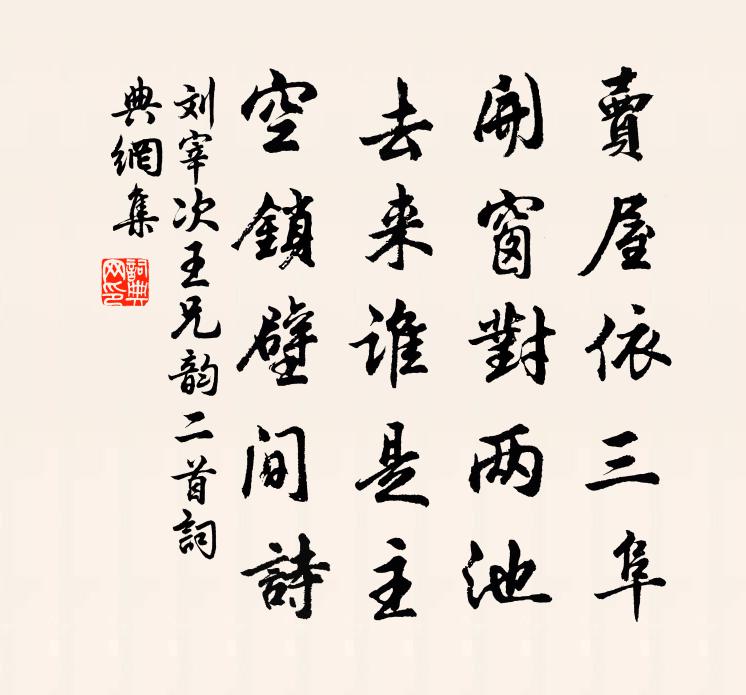 賣屋依三阜
開窗對两池
去来谁是主
空鎖壁間詩
刘宰次王兄韵二首詞
典網集
詞典
网印